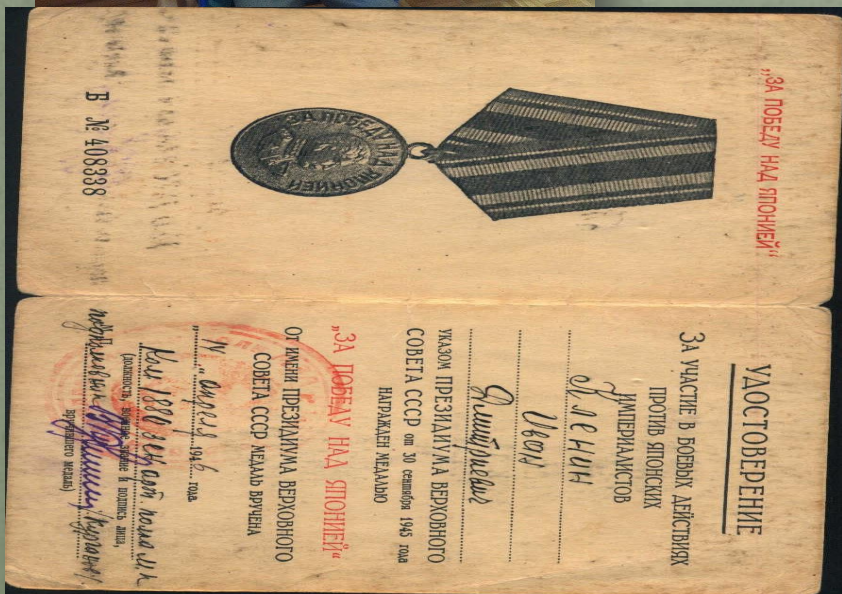 „ЗА ПОБЕДУ НАД ЯПОНИЕЙ“
ЗА ПОБЕДУ НАД ЯПОНИЕЙ
В № 408338
УДОСТОВЕРЕНИЕ
ЗА УЧАСТИЕ В БОЕВЫХ ДЕЙСТВИЯХ
ПРОТИВ ЯПОНСКИХ
ИМПЕРИАЛИСТОВ
Кленин
Иван
Дмитриевич
УКАЗОМ ПРЕЗИДИУМА ВЕРХОВНОГО
СОВЕТА СССР от 30 сентября 1945 года
НАГРАЖДЕН МЕДАЛЬЮ
„ЗА ПОБЕДУ НАД ЯПОНИЕЙ“
ОТ ИМЕНИ ПРЕЗИДИУМА ВЕРХОВНОГО
СОВЕТА СССР МЕДАЛЬ ВРУЧЕНА
апреля 1946 года
Ком 1880 зен арт полка
(должность, звание и подпись лица,
подполковник
вручившего медаль)